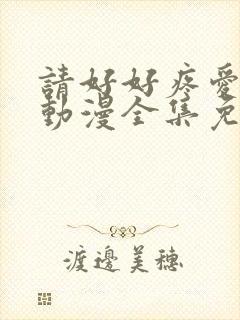 請好好疼愛
動漫全集免
渡邊美穗